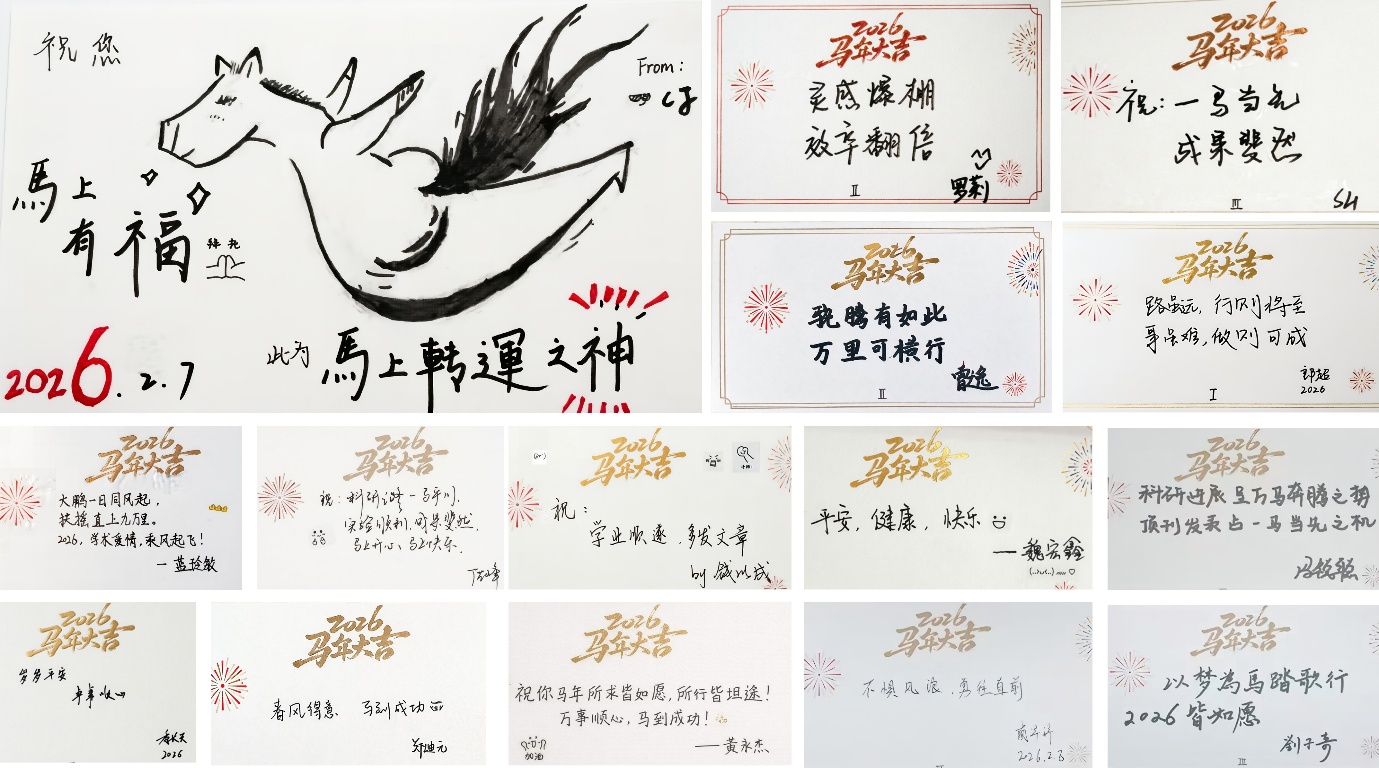 祝您
From:
CJ
馬上
有福
拜托
2026.2.7
此为 馬上轉運之神
2026
马年大吉
灵感爆棚
效率翻倍
罗莉
II
2026
马年大吉
祝:一马当先
成果斐然
III
SH
2026
马年大吉
骁腾有如此
万里可横行
曹逸
II
2026
马年大吉
路虽远,行则将至
事虽难,做则可成
郭超
2026
I
2026
马年大吉
大鹏一日同风起,
扶摇直上九万里。
2026,学术爱情,乘风起飞!
一 蓝玲敏
2026
马年大吉
祝:科研之路一马平川,
实验顺利,成果斐然,
马上开心、马上快乐.
2026
马年大吉
祝:
学业顺遂,多发文章
by 钱以成
2026
马年大吉
平安,健康,快乐
—魏宏鑫
2026
马年大吉
科研进展呈万马奔腾之势
顶刊发表占一马当先之机
冯锐聪
2026
马年大吉
岁岁平安
事事顺心
2026
2026
马年大吉
春风得意 马到成功
郑迪元
2026
马年大吉
祝你马年所求皆如愿,所行皆坦途!
万事顺心,马到成功!
加油
——黄永杰
2026
马年大吉
不惧风浪,勇往直前
2026.2.8
2026
马年大吉
以梦为馬踏歌行
2026 皆如愿
劉子奇
III